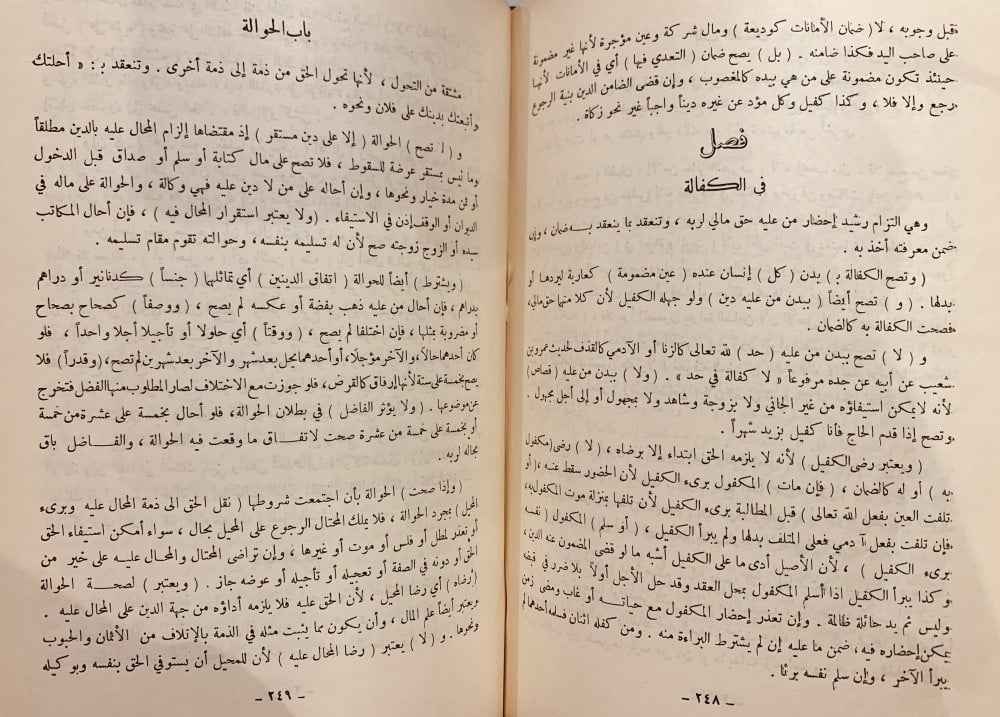 فقبل وجوبه ، لا ( ضمان الأمانات كوديعة ) ومال شركة وعين مؤجرة لأنها غير مضمونة
على صاحب اليد فكذا ضامنه . ( بل ) يصح ضمان ( التعدي فيها ) أي في الأمانات لأنها
حينئذ تكون مضمونة على من هي بيده كالمغصوب ، وإن قضى الضامن الدين بنية الرجوع
رجع وإلا فلا ، وكذا كفيل وكل مؤد عن غيره ديناً واجباً غير نحو زكاة .
فصل
في الكفالة
وهي التزام رشيد إحضار من عليه حق مالي لربه ، وتنعقد بما ينعقد به ضمان ، وإن
ضمن معرفته أخذ به .
( وتصح الكفالة بـ ) بدن ( كل ) إنسان عنده ( عين مضمومة ) كعارية ليردها أو
بدلها . ( و ) تصح أيضاً ( ببدن من عليه دين ) ولو جهله الكفيل لأن كلا منهما حق مالي،
فصحت الكفالة به كالضمان .
و ( لا ) تصح ببدن من عليه ( حد ) لله تعالى كالزنا أو لآدمي كالقذف لحديث عمرو بن
شعيب عن أبيه عن جده مرفوعاً « لا كفالة في حد » . ( ولا ) ببدن من عليه ( قصاص )
لأنه لا يمكن استيفاؤه من غير الجاني ولا بزوجة وشاهد ولا بمجهول أو إلى أجل مجهول .
وتصح إذا قدم الحاج فأنا كفيل بزيد شهراً .
( ويعتبر رضى الكفيل ) لأنه لا يلزمه الحق ابتداء إلا برضاه ، ( لا ) رضى ( مكفول
به ) أو له كالضمان ، ( فإن مات ) المكفول برىء الكفيل لأن الحضور سقط عنه ، ( أو
تلفت العين بفعل الله تعالى ) قبل المطالبة برىء الكفيل لأن تلفها بمنزلة موت المكفول به،
فإن تلفت بفعل آدمي فعلى المتلف بدلها ولم يبرأ الكفيل ، ( أو سلم ) المكفول ( نفسه
برىء الكفيل ) ، لأن الأصيل أدى ما على الكفيل أشبه ما لو قضى المضمون عنه الدين ،
وكذا يبرأ الكفيل اذا أسلم المكفول بمحل العقد وقد حل الأجل أولاً بلا ضرر في قبضه
وليس ثم يد حائلة ظالمة . وإن تعذر إحضار المكفول مع حياته أو غاب ومضى زمن
يمكن إحضاره فيه، ضمن ما عليه إن لم يشترط البراءة منه . ومن كفله اثنان فسلمه أحدهما لم
يبرأ الآخر ، وإن سلم نفسه برئا .
– ٢٤٨ –
باب الحوالة
مشتقة من التحول ، لأنها تحول الحق من ذمة إلى ذمة أخرى . وتنعقد بـ : « أحلتك
وأتبعتك بدينك على فلان ونحوه .
و ( لا تصح ) الحوالة ( إلا على دين مستقر ) إذ مقتضاها إلزام المحال عليه بالدين مطلقاً
وما ليس بمستقر عرضة للسقوط ، فلا تصح على مال كتابة أو سلم أو صداق قبل الدخول
أو ثمن مدة خيار ونحوها ، وإن أحاله على من لا دين عليه فهي وكالة ، والحوالة على ماله في
الديوان أو الوقف إذن في الاستيفاء . ( ولا يعتبر استقرار المحال فيه ) ، فإن أحال المكاتب
سيده أو الزوج زوجته صح لأن له تسليمه بنفسه، وحوالته تقوم مقام تسليمه .
( ويشترط ) أيضاً للحوالة ( اتفاق الدينين ) أي تماثلهما ( جنساً ) كدنانير أو دراهم
بدراهم ، فإن أحال من عليه ذهب بفضة أو عكسه لم يصح ، ( ووصفاً ) كصحاح بصحاح
أو مضروبة بمثلها ، فإن اختلفا لم يصح ، ( ووقتاً ) أي حلولا أو تأجيلا أجلا واحداً ، فلو
كان أحدهما حالاً، والآخر مؤجلاً، أو أحدهما يحل بعد شهر والآخر بعد شهرين لم تصح، (وقدراً) فلا
يصح بخمسة على ستة لأنها إرفاق كالقرض، فلو جوزت مع الاختلاف لصار المطلوب منها الفضل فتخرج
عن موضوعها . ( ولا يؤثر الفاضل ) في بطلان الحوالة، فلو أحال بخمسة على عشرة من خمسة
أو بخمسة على خمسة من عشرة صحت لاتفاق ما وقعت فيه الحوالة ، والفاضل باق
بحاله لربه .
( وإذا صحت ) الحوالة بأن اجتمعت شروطها ( نقل الحق الى ذمة المحال عليه وبرىء
المحيل ) بمجرد الحوالة ، فلا يملك المحتال الرجوع على المحيل بحال ، سواء أمكن استيفاء الحق
أو تعذر لمطل أو فلس أو موت أو غيرها ، وإن تراضى المحتال والمحال عليه على خير من
الحق أو دونه في الصفة أو تعجيله أو تأجيله أو عوضه جاز . ( ويعتبر ) لصحة الحوالة
( رضاه ) أي رضا المحيل ، لأن الحق عليه فلا يلزمه أداؤه من جهة الدين على المحال عليه .
ويعتبر أيضاً علم المال ، وأن يكون مما يثبت مثله في الذمة بالإتلاف من الأثمان والحبوب
ونحوها . و ( لا ) يعتبر ( رضا المحال عليه ) لأن للمحيل أن يستوفي الحق بنفسه وبوكيله
– ٢٤٩ –